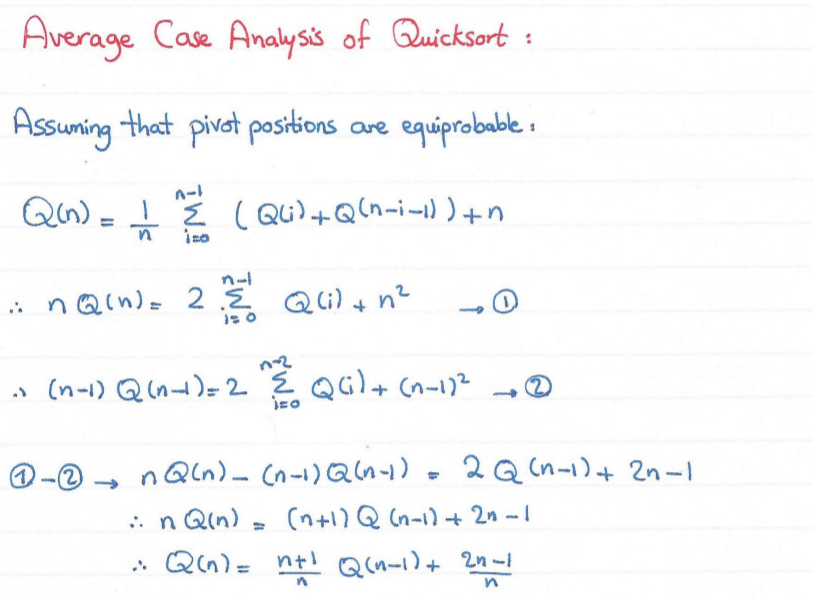 Average Case Analysis of Quicksort :
Assuming that pivot positions are equiprobable :
Q(n) = 1/n ∑_{i=0}^{n-1} ( Q(i) + Q(n-i-1) ) + n
∴ n Q(n) = 2 ∑_{i=0}^{n-1} Q(i) + n² → ①
∴ (n-1) Q(n-1) = 2 ∑_{i=0}^{n-2} Q(i) + (n-1)² → ②
① - ② → n Q(n) - (n-1) Q(n-1) = 2 Q(n-1) + 2n - 1
∴ n Q(n) = (n+1) Q(n-1) + 2n - 1
∴ Q(n) = (n+1)/n Q(n-1) + (2n-1)/n